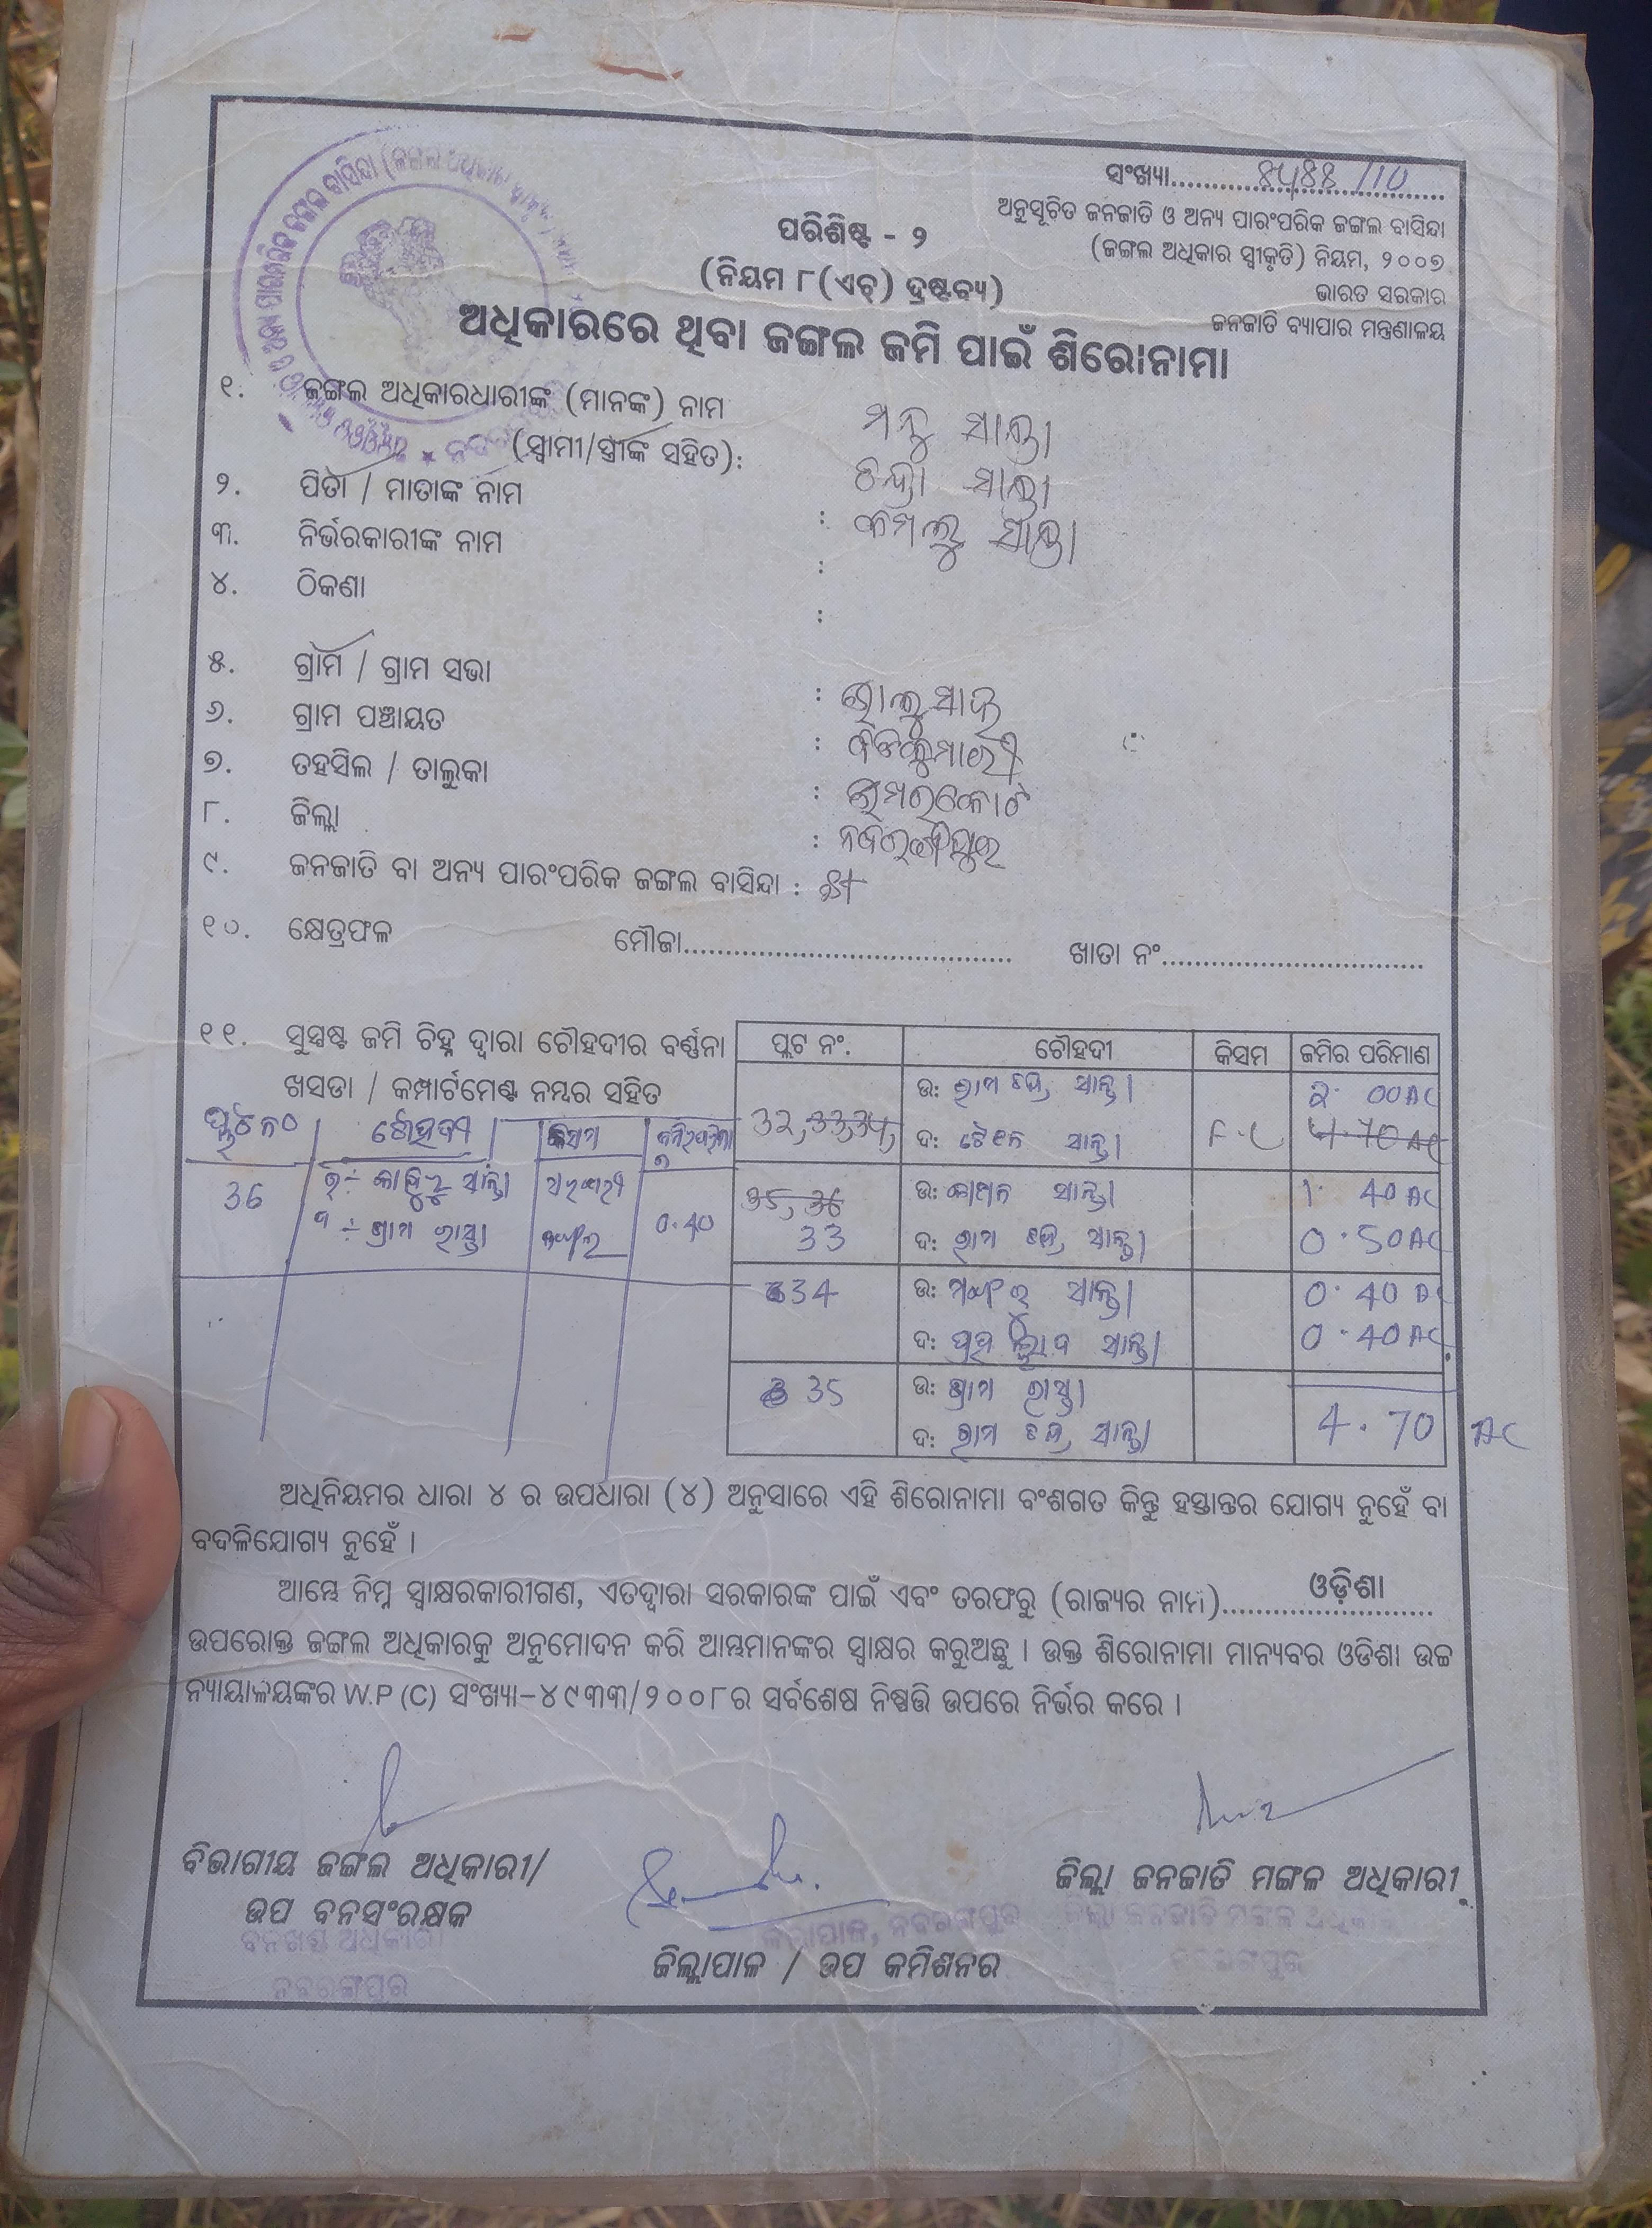 ସଂଖ୍ୟା..................................
ଅନୁସୂଚିତ ଜନଜାତି ଓ ଅନ୍ୟ ପାରଂପରିକ ଜଙ୍ଗଲ ବାସିନ୍ଦା
(ଜଙ୍ଗଲ ଅଧିକାର ସ୍ୱୀକୃତି) ନିୟମ, ୨୦୦୭
ଭାରତ ସରକାର
ଜନଜାତି ବ୍ୟାପାର ମନ୍ତ୍ରଣାଳୟ
ପରିଶିଷ୍ଟ - ୨
(ନିୟମ ୮(ଏଚ୍) ଦ୍ରଷ୍ଟବ୍ୟ)
ଅଧିକାରରେ ଥିବା ଜଙ୍ଗଲ ଜମି ପାଇଁ ଶିରୋନାମା
୧. ଜଙ୍ଗଲ ଅଧିକାରଧାରୀଙ୍କ (ମାନଙ୍କ) ନାମ
(ସ୍ୱାମୀ/ସ୍ତ୍ରୀଙ୍କ ସହିତ): ମନ୍ତୁ ସାନ୍ତା
୨. ପିତା / ମାତାଙ୍କ ନାମ : ସାନ୍ତା
୩. ନିର୍ଭରକାରୀଙ୍କ ନାମ : ସାନ୍ତା
୪. ଠିକଣା :
୫. ଗ୍ରାମ / ଗ୍ରାମ ସଭା :
୬. ଗ୍ରାମ ପଞ୍ଚାୟତ :
୭. ତହସିଲ / ତାଲୁକା : ଉମରକୋଟ
୮. ଜିଲ୍ଲା : ନବରଙ୍ଗପୁର
୯. ଜନଜାତି ବା ଅନ୍ୟ ପାରଂପରିକ ଜଙ୍ଗଲ ବାସିନ୍ଦା :
୧୦. କ୍ଷେତ୍ରଫଳ ମୌଜା........................................ ଖାତା ନଂ................................
୧୧. ସୁସ୍ପଷ୍ଟ ଜମି ଚିହ୍ନ ଦ୍ୱାରା ଚୌହଦୀର ବର୍ଣ୍ଣନା
ଖସଡା / କମ୍ପାର୍ଟମେଣ୍ଟ ନମ୍ବର ସହିତ
ପ୍ଲଟ ନଂ ଚୌହଦୀ କିସମ
36 ସାନ୍ତା 0.40
ଗ୍ରାମ ରାସ୍ତା ଜଙ୍ଗଲ
ପ୍ଲଟ ନଂ. ଚୌହଦୀ କିସମ ଜମିର ପରିମାଣ
32, 33, 34, ଉ: ରାମ ଚନ୍ଦ୍ର ସାନ୍ତା 2.00 AC
ଦ: ସାନ୍ତା F.C 4.70 AC
35, 36 ଉ: ସାନ୍ତା 1.40 AC
33 ଦ: ରାମ ଚନ୍ଦ୍ର ସାନ୍ତା 0.50 AC
34 ଉ: ସାନ୍ତା 0.40 AC
ଦ: ସାନ୍ତା 0.40 AC
35 ଉ: ଗ୍ରାମ ରାସ୍ତା
ଦ: ରାମ ଚନ୍ଦ୍ର ସାନ୍ତା 4.70 AC
ଅଧିନିୟମର ଧାରା ୪ ର ଉପଧାରା (୪) ଅନୁସାରେ ଏହି ଶିରୋନାମା ବଂଶଗତ କିନ୍ତୁ ହସ୍ତାନ୍ତର ଯୋଗ୍ୟ ନୁହେଁ ବା
ବଦଳିଯୋଗ୍ୟ ନୁହେଁ ।
ଆମ୍ଭେ ନିମ୍ନ ସ୍ୱାକ୍ଷରକାରୀଗଣ, ଏତଦ୍ୱାରା ସରକାରଙ୍କ ପାଇଁ ଏବଂ ତରଫରୁ (ରାଜ୍ୟର ନାମ)..........ଓଡ଼ିଶା..........
ଉପରୋକ୍ତ ଜଙ୍ଗଲ ଅଧିକାରକୁ ଅନୁମୋଦନ କରି ଆମ୍ଭମାନଙ୍କର ସ୍ୱାକ୍ଷର କରୁଅଛୁ । ଉକ୍ତ ଶିରୋନାମା ମାନ୍ୟବର ଓଡିଶା ଉଚ୍ଚ
ନ୍ୟାୟାଳୟଙ୍କର W.P (C) ସଂଖ୍ୟା-୪୯୩୩/୨୦୦୮ର ସର୍ବଶେଷ ନିଷ୍ପତ୍ତି ଉପରେ ନିର୍ଭର କରେ ।
ବିଭାଗୀୟ ଜଙ୍ଗଲ ଅଧିକାରୀ/
ଉପ ବନସଂରକ୍ଷକ
ବନଖଣ୍ଡ ଅଧିକାରୀ
ନବରଙ୍ଗପୁର
ଜିଲ୍ଲାପାଳ, ନବରଙ୍ଗପୁର
ଜିଲ୍ଲାପାଳ / ଉପ କମିଶନର
ଜିଲ୍ଲା ଜନଜାତି ମଙ୍ଗଳ ଅଧିକାରୀ
ଜିଲ୍ଲା ଜନଜାତି ମଙ୍ଗଳ ଅଧିକାରୀ
ନବରଙ୍ଗପୁର